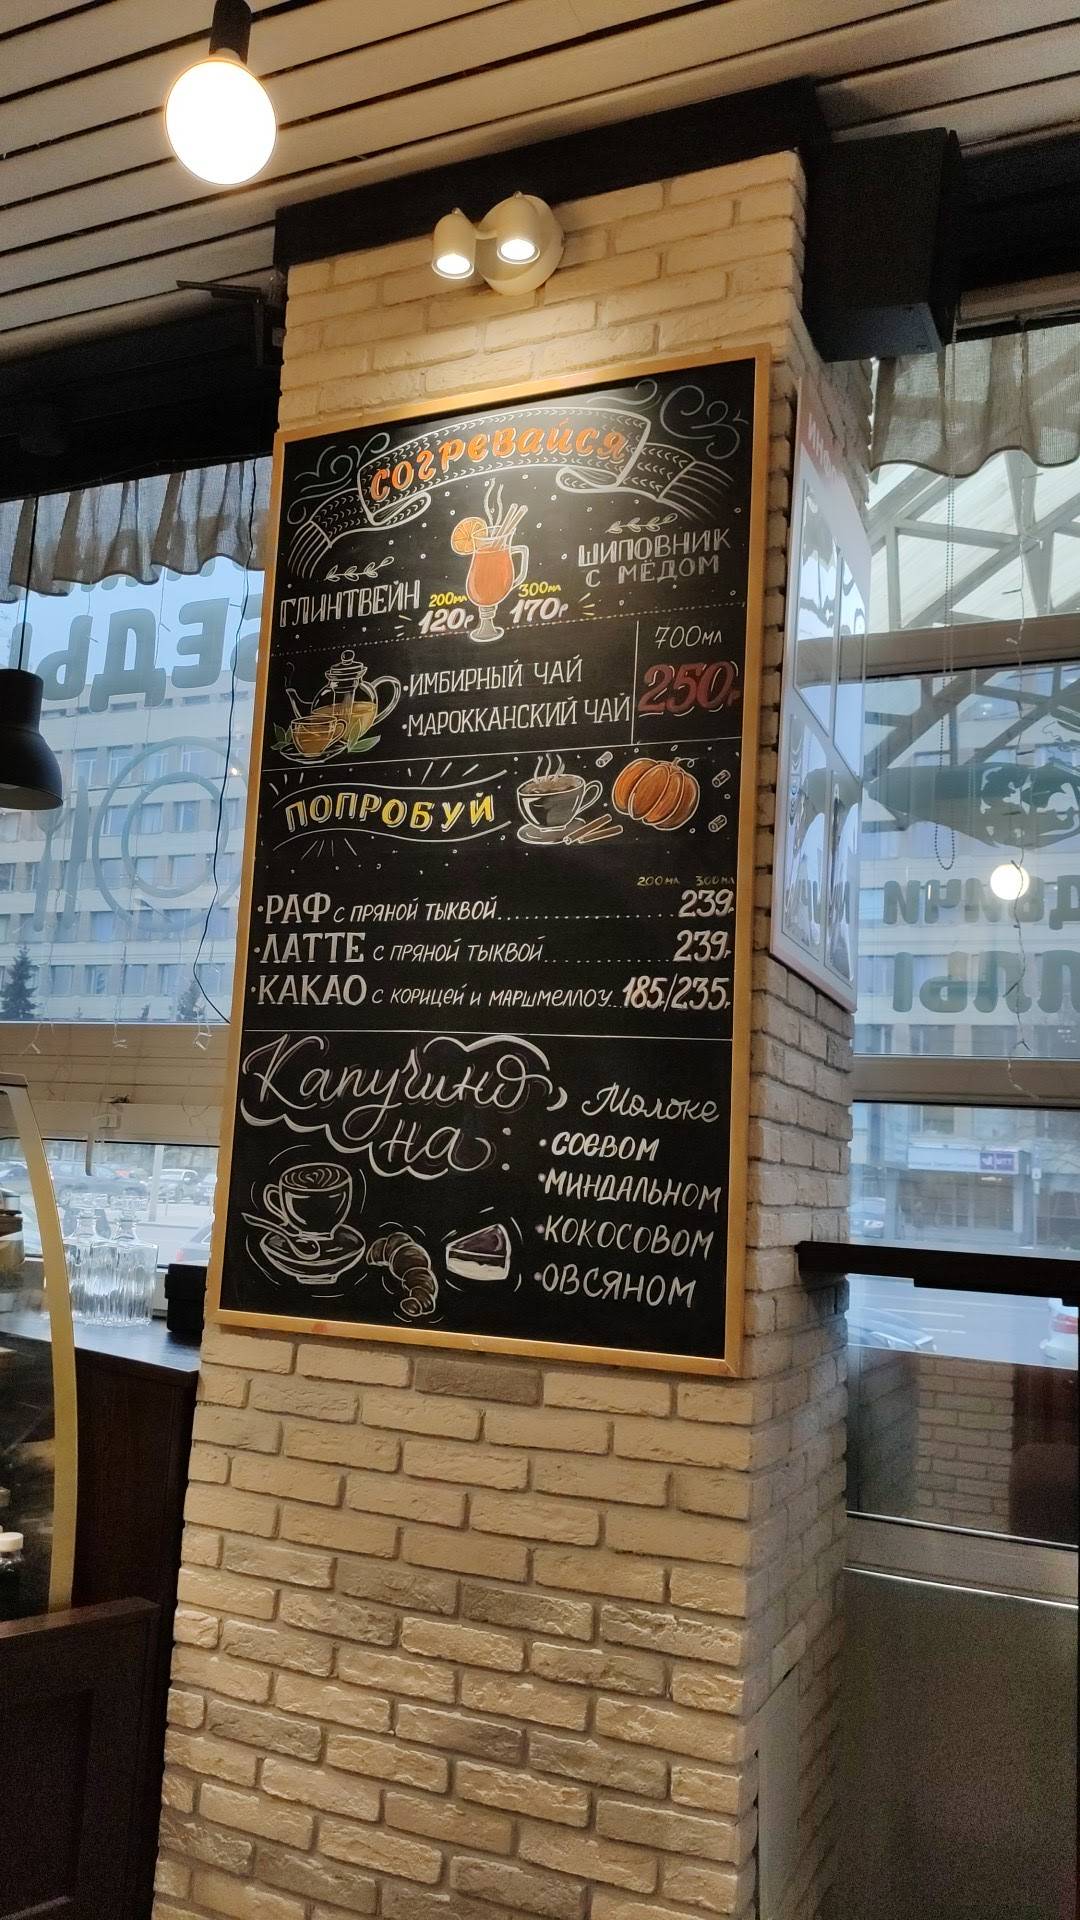 согревайся
ГЛИНТВЕЙН
200мл
120р
300мл
170р
ШИПОВНИК
С МЁДОМ
•ИМБИРНЫЙ ЧАЙ
•МАРОККАНСКИЙ ЧАЙ
700мл
250р
ПОПРОБУЙ
200мл 300мл
•РАФ С ПРЯНОЙ ТЫКВОЙ.................... 239р
•ЛАТТЕ С ПРЯНОЙ ТЫКВОЙ............... 239р
•КАКАО С КОРИЦЕЙ И МАРШМЕЛЛОУ..185р/235р
Капучино
на:
Молоке
•СОЕВОМ
•МИНДАЛЬНОМ
•КОКОСОВОМ
•ОВСЯНОМ